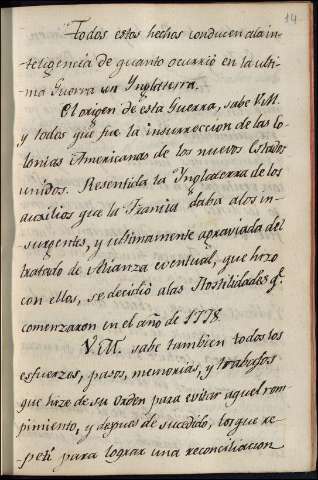 14
Todos estos hechos conducen ála in-
teligencia de quanto ocurrió en la ulti-
ma Guerra con Ynglaterra.
El origen de esta Guerra, sabe V.M.
y todos que fue la insurreccion de las Co-
lonias Americanas de los nuevos Estados
unidos. Resentida la Ynglaterra de los
auxilios que la Francia daba alos in-
surgentes, y ultimamente agraviada del
tratado de Alianza eventual, que hizo
con ellos, se decidió alas Hostilidades q.e
comenzaron en el año de 1778.
V.M. sabe tambien todos los
esfuerzos, pasos, memorias, y trabajos
que hize de su orden para evitar aquel rom-
pimiento, y depues de sucedido, los que re-
petí para lograr una reconciliacion